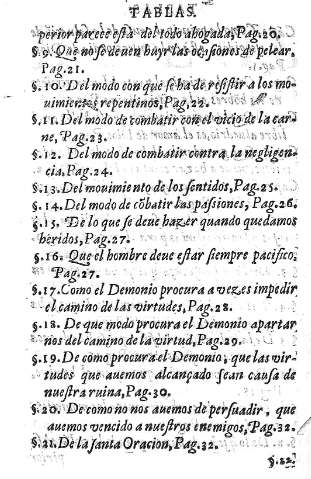 TABLAS.
perior parece està del todo ahogada, Pag. 20.
§. 9. Que no se deuen huyr las ocasiones de pelear,
Pag. 21.
§. 10. Del modo con que se ha de resistir a los mo-
uimientos repentinos, Pag. 22.
§. 11. Del modo de combatir con el vicio de la car-
ne, Pag. 23.
§. 12. Del modo de combatir contra la negligen-
cia, Pag. 24.
§. 13. Del mouimiento de los sentidos, Pag. 25.
§. 14. Del modo de cõbatir las passiones, Pag. 26.
§. 15. De lo que se deve hazer quando quedamos
heridos, Pag. 27.
§. 16. Que el hombre deve estar siempre pacifico,
Pag. 27.
§. 17. Como el Demonio procura a vezes impedir
el camino de las virtudes, Pag. 28.
§. 18. De que modo procura el Demonio apartar
nos del camino de la virtud, Pag. 29.
§. 19. De como procura el Demonio, que las vir-
tudes que auemos alcançado sean causa de
nuestra ruina, Pag. 30.
§. 20. De como no nos auemos de persuadir, que
auemos vencido a nuestros enemigos, Pag. 32.
§. 21. De la santa Oracion, Pag. 32.
§. 22.